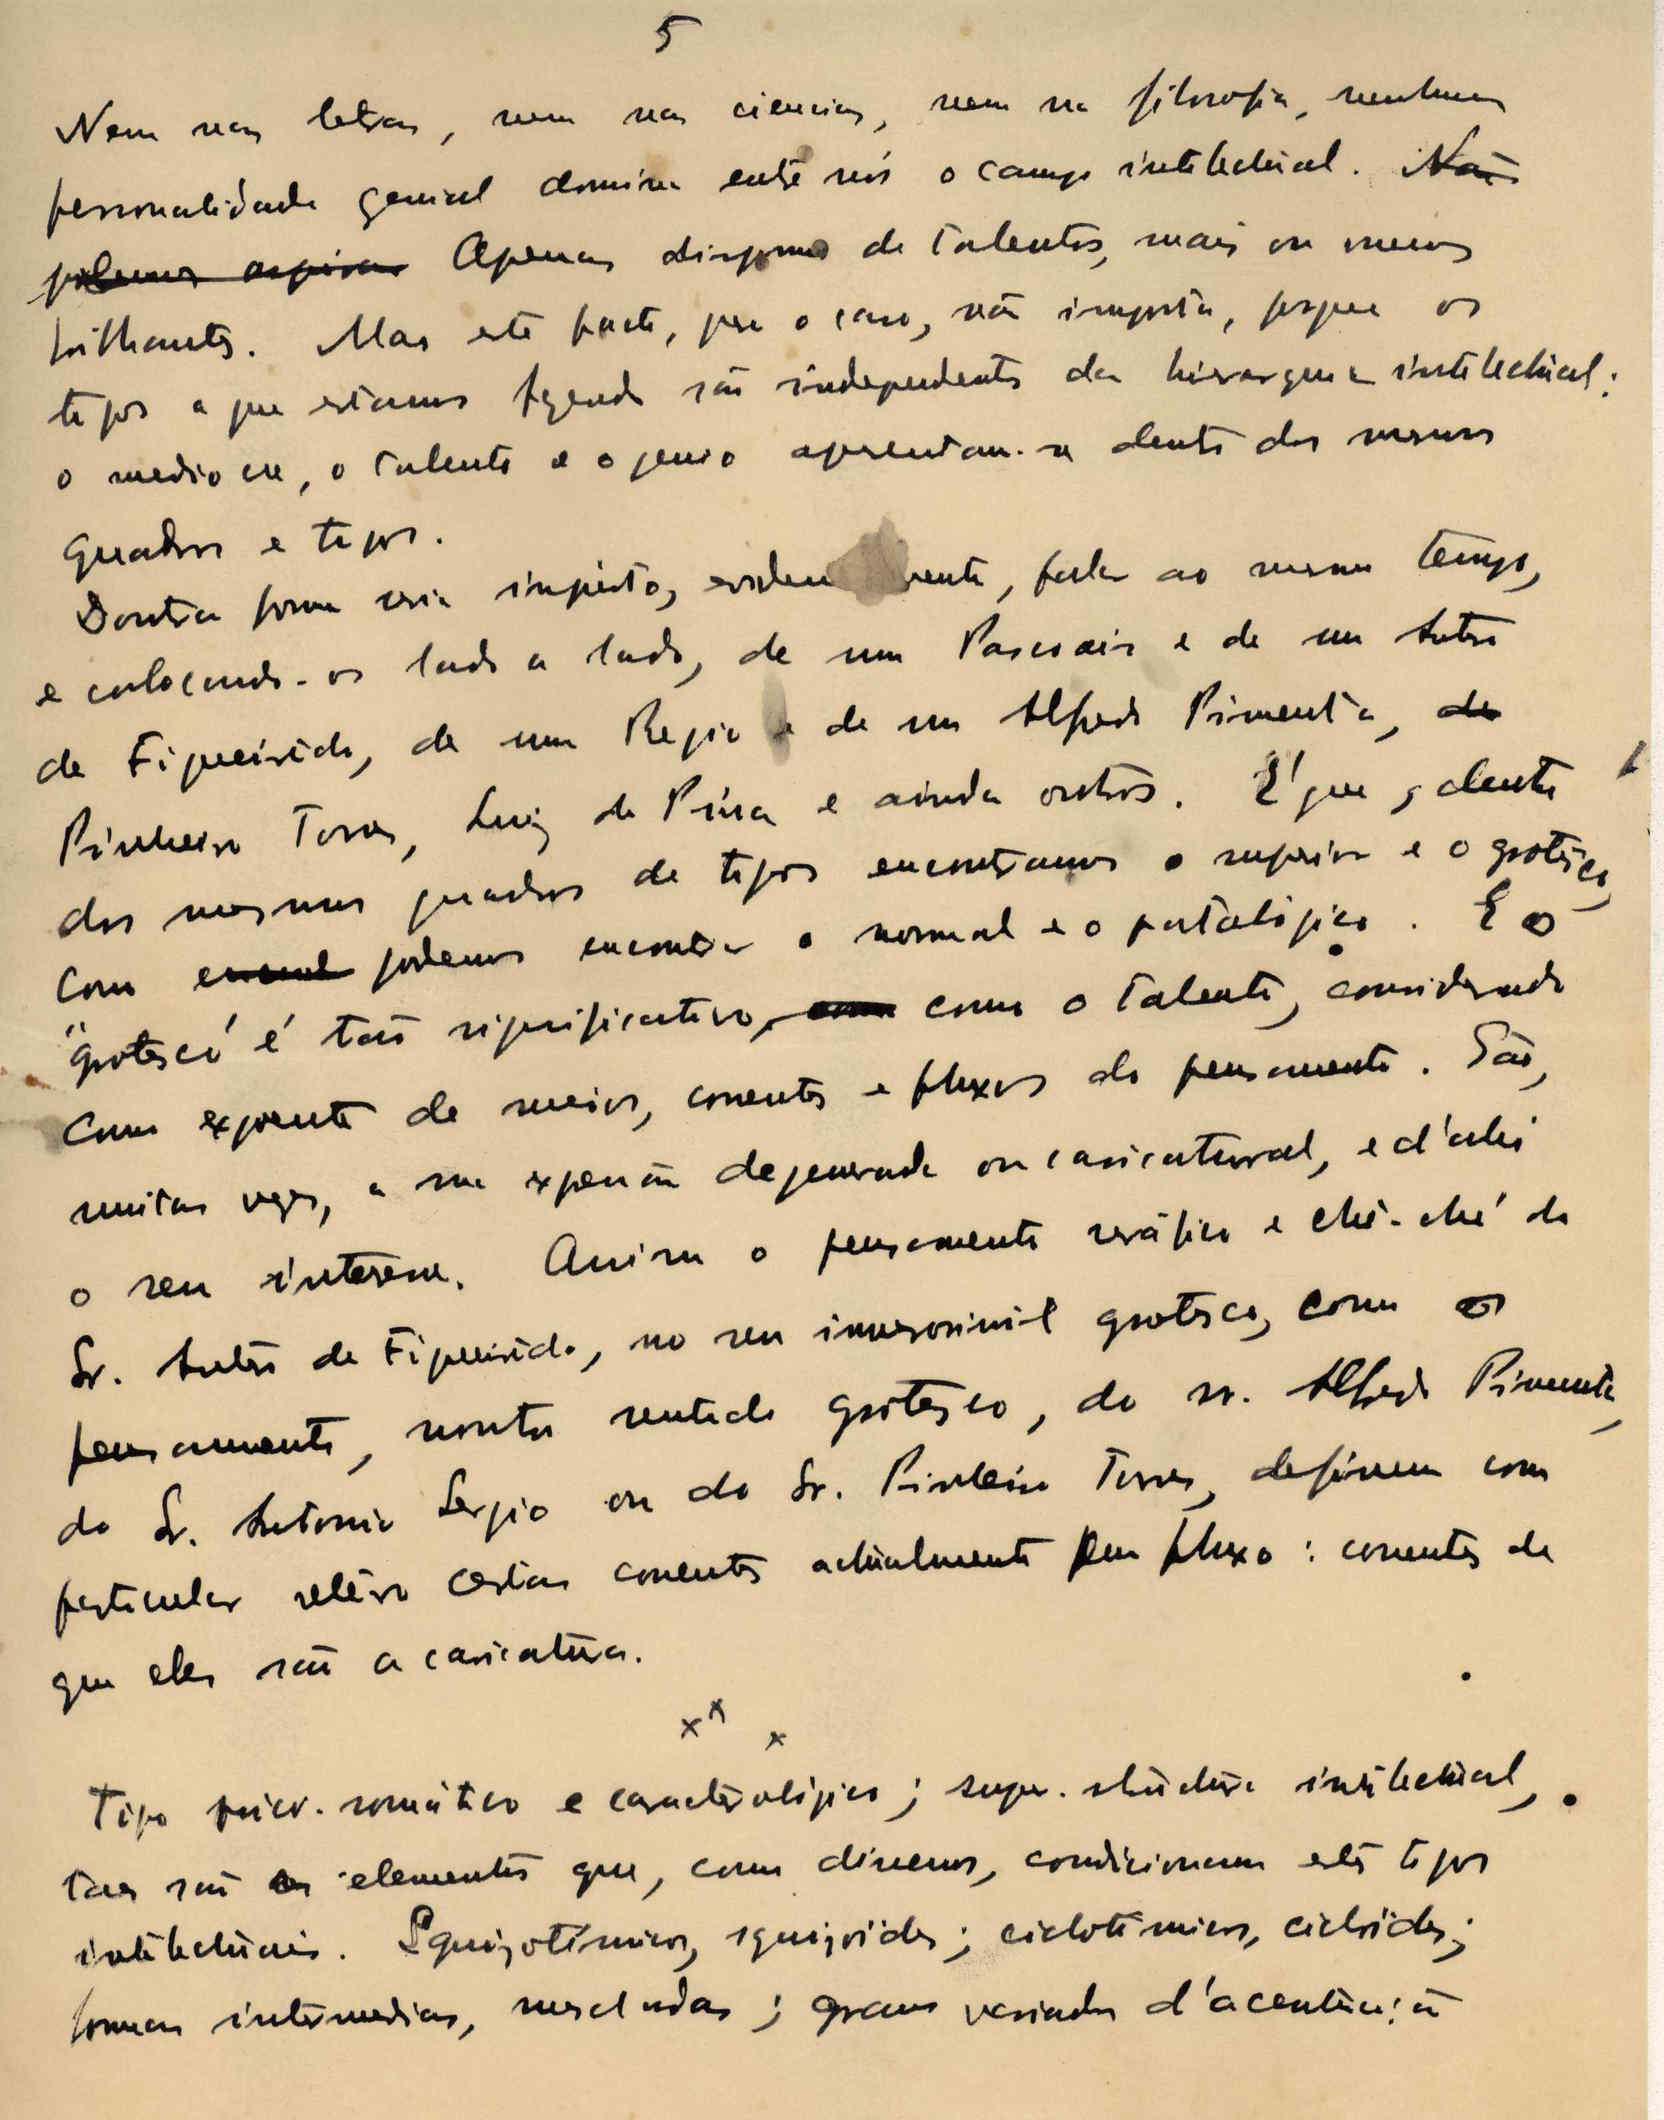 5
Nem nas letras, nem nas ciencias, nem na filosofia, nenhuma
personalidade genial domina entre nós o campo intelectual. Não
podemos aspirar Apenas dispomos de talentos, mais ou menos
brilhantes. Mas este facto, para o caso, não importa, porque os
tipos a que estamos fazendo são independentes da hierarquia intelectual:
o mediocre, o talento e o genio apresentam-se dentro dos mesmos
quadros e tipos.
Doutra forma seria injusto, evidentemente, falar ao mesmo tempo,
e colocando-os lado a lado, de um Pascoais e de um Antero
de Figueiredo, de um Regio e de um Alfredo Pimenta, de
Pinheiro Torres, Luiz de Pina e ainda outros. É que, dentro
dos mesmos quadros de tipos encontramos o superior e o grotesco,
como podemos encontrar o normal e o patológico. E o
"grotesco" é tão significativo, como como o talento, considerado
como expoente de meios, correntes e fluxos do pensamento. São,
muitas vezes, a sua expressão degenerada ou caricatural, e d'ahi
o seu interesse. Assim o pensamento seráfico e ché-ché do
Sr. Antero de Figueiredo, no seu inverosimil grotesco, como o
pensamento, noutro sentido grotesco, do sr. Alfredo Pimenta,
do Sr. Antonio Sergio ou do Sr. Pinheiro Torres, definem com
particular relêvo certas correntes actualmente em fluxo: correntes de
que eles são a caricatura.
x x x
Tipo psico-somático e caracterológico; super-estrutura intelectual,
taes são os elementos que, como dissemos, condicionam estes tipos
intelectuais. Esquizotímicos, esquizóides; ciclotímicos, ciclóides;
formas intermedias, mescladas; graus variados d'acentuação